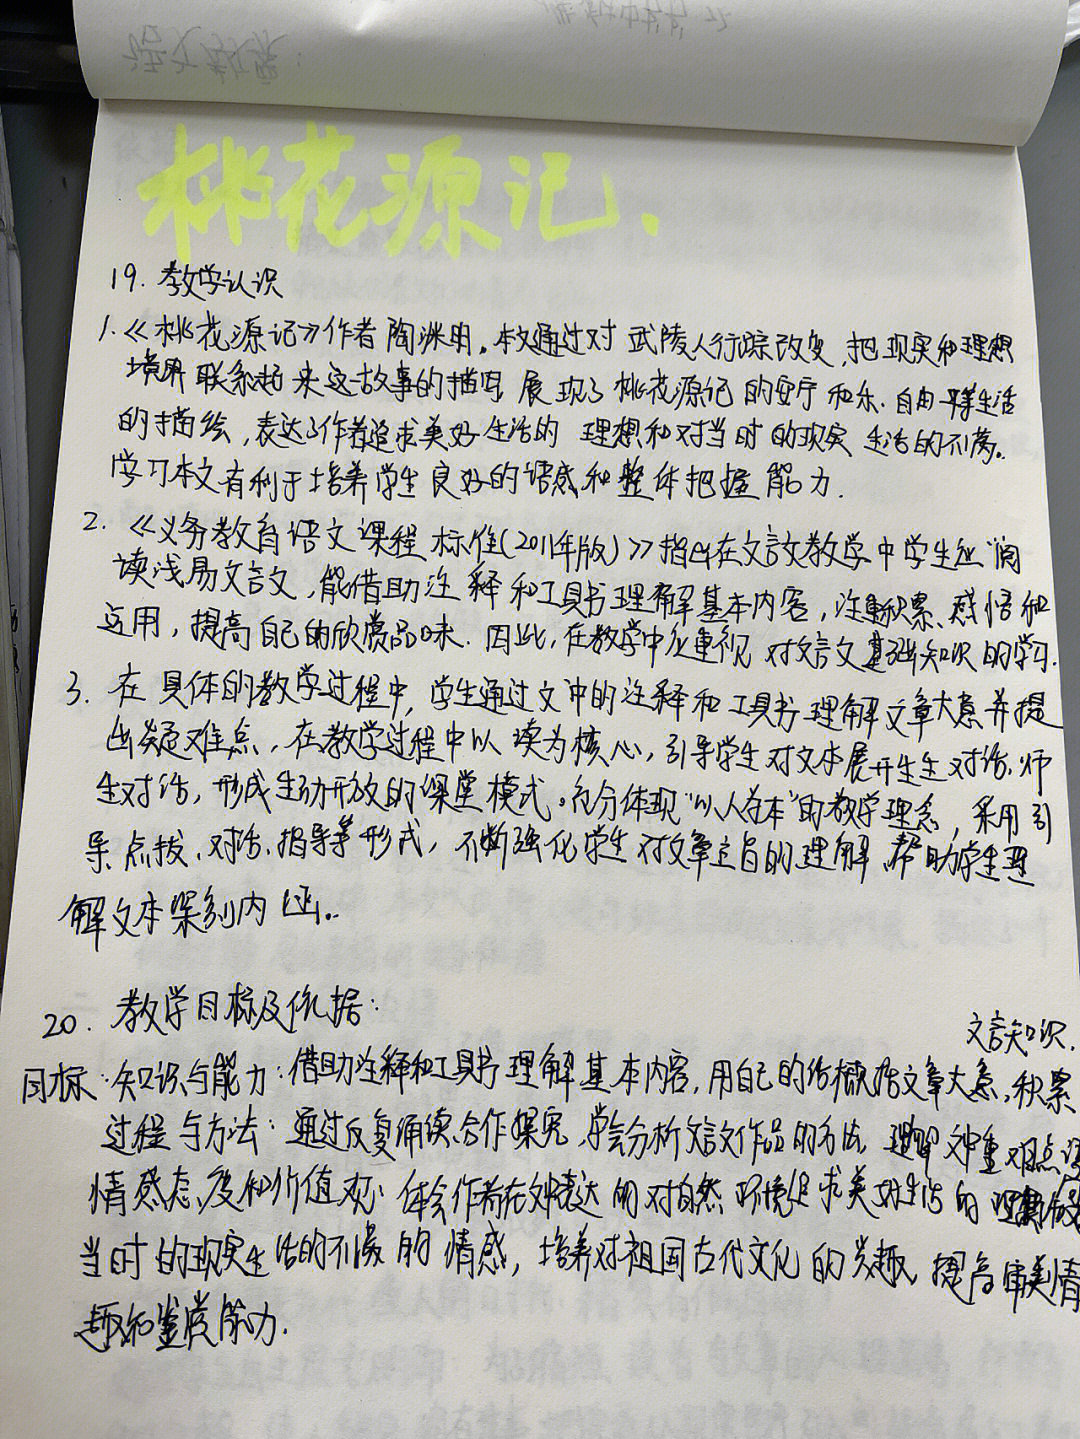 桃花源记.
19. 教学认识
1.《桃花源记》作者陶渊明。本文通过对武陵人行踪改变，把现实和理想
境界联系起来这一故事的描写展现了桃花源记的安宁和乐.自由平等生活
的描绘，表达了作者追求美好生活的理想和对当时的现实生活的不满。
学习本文有利于培养学生良好的语感和整体把握能力.
2.《义务教育语文课程标准(2011年版)》指出在文言文教学中学生应"阅
读浅易文言文，能借助注释和工具书理解基本内容，注重积累、感悟和
运用，提高自己的欣赏品味.因此,在教学中应重视对文言文基础知识的学习.
3. 在具体的教学过程中,学生通过文中的注释和工具书理解文章大意并提
出疑难点，在教学过程中以读为核心，引导学生对文本展开生生对话,师
生对话，形成生动开放的课堂模式。充分体现"以人为本"的教学理念，采用引
导.点拨、对话、指导等形式，不断强化学生对文章主旨的理解,帮助学生理
解文本深刻内涵。
20. 教学目标及依据：
文言知识.
目标:知识与能力:借助注释和工具书理解基本内容,用自己的话概括文章大意,积累
过程与方法：通过反复诵读,合作探究,学会分析文言文作品的方法,理解文中重难点
情感态度和价值观:体会作者在文中表达的对自然环境追求美好生活的理想
当时的现实生活的不满的情感，培养对祖国古代文化的兴趣,提高审美情
趣和鉴赏能力.